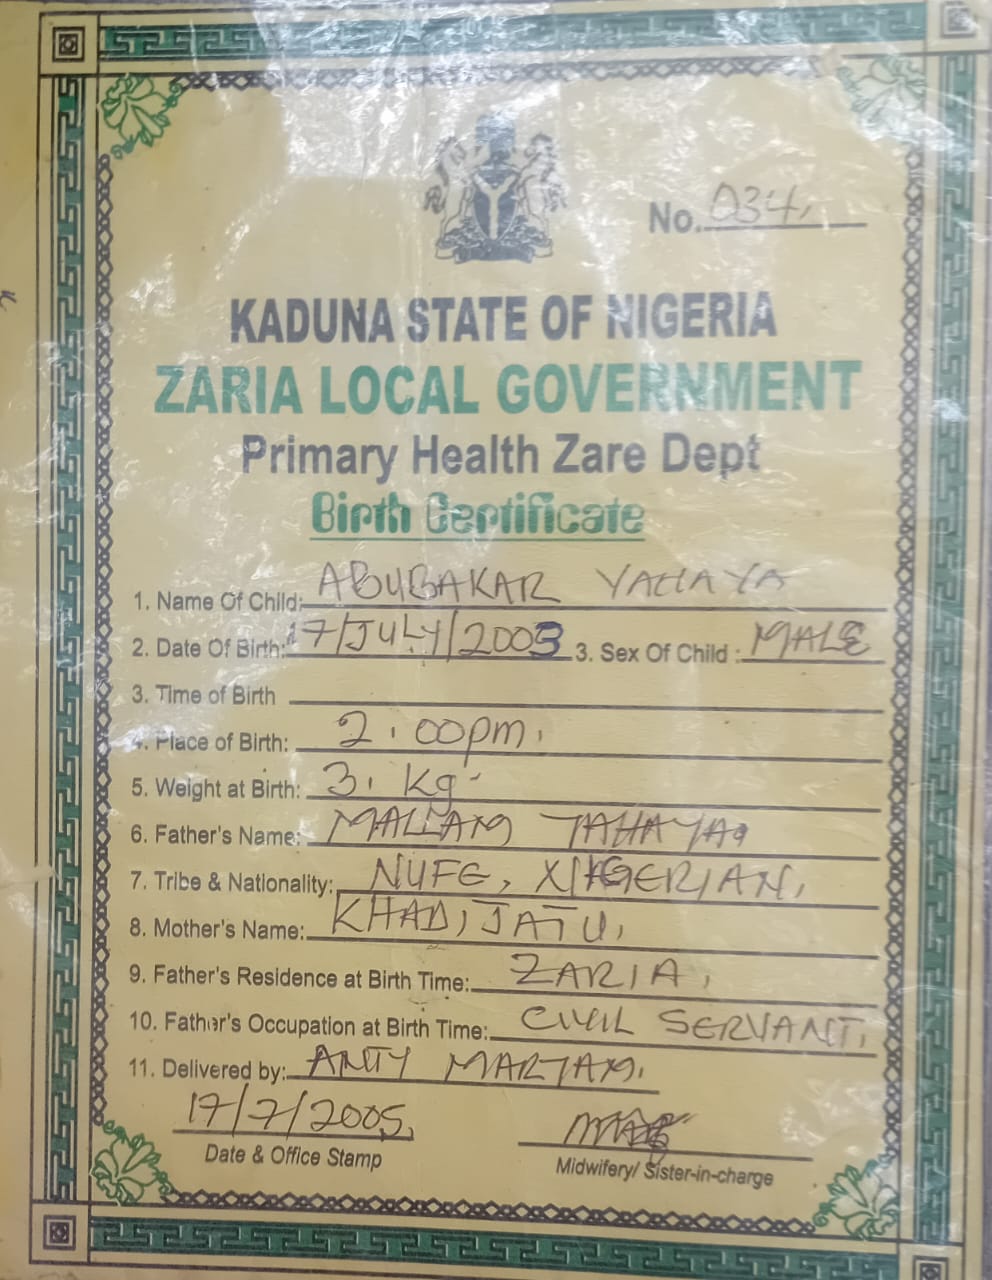 No. 034,
KADUNA STATE OF NIGERIA
ZARIA LOCAL GOVERNMENT
Primary Health Zare Dept
Birth Certificate
1. Name Of Child: ABUBAKAR YAHAYA
2. Date Of Birth: 17/JULY/2003 3. Sex Of Child : MALE
3. Time of Birth
4. Place of Birth: 2.00pm.
5. Weight at Birth: 3. Kg
6. Father's Name: MALLAM YAHAYA
7. Tribe & Nationality: NUFE, NIGERIAN,
8. Mother's Name: KHADIJATU,
9. Father's Residence at Birth Time: ZARIA,
10. Father's Occupation at Birth Time: CIVIL SERVANT,
11. Delivered by: ANTY MARYAM.
17/7/2005,
Date & Office Stamp
Midwifery/ Sister-in-charge